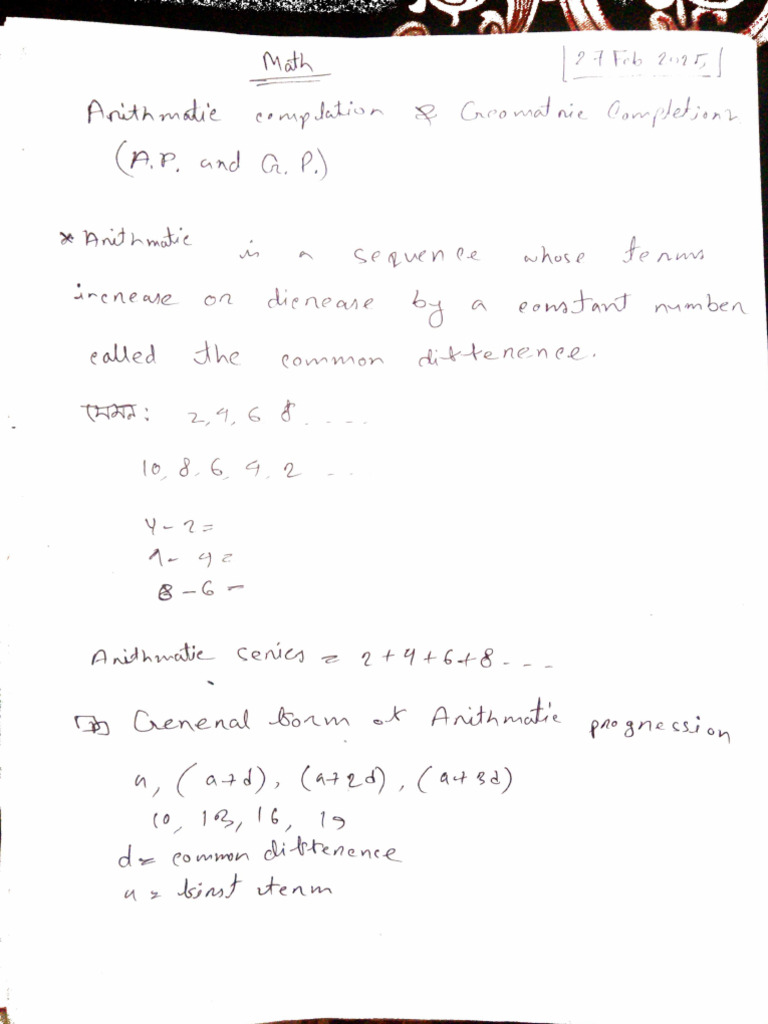 Math
27 Feb 2025
Arithmatic compilation & Greomatric Completionr
(A.P. and G.P.)
* Arithmatic is a sequence whose terms
increase or dicrease by a constant number
called the common difference.
যেমন: 2, 4, 6 8 ....
10, 8, 6, 4, 2 ...
4 - 2 =
- 4 =
8 - 6 -
Arithmatic series = 2 + 4 + 6 + 8 - - -
General form of Arithmatic progression
a, (a+d), (a+2d), (a+3d)
10, 13, 16, 19
d = common difference
a = first term